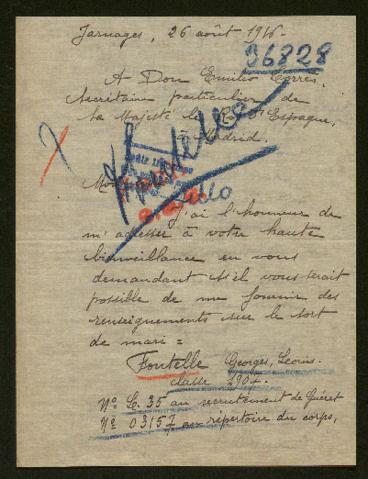 Jarnages, 26 août 1916.
36828
A Don Emilio Torrès,
Secrétaire particulier de
Sa Majesté le Roi d'Espagne,
à Madrid.
J'ai l'honneur de
m'adresser à votre haute
bienveillance en vous
demandant s'il vous serait
possible de me fournir des
renseignements sur le sort
de mari =
Fontelle Georges,
classe 1904.
N° L. 35 au recrutement de Guéret
N° 03157 au répertoire du corps,